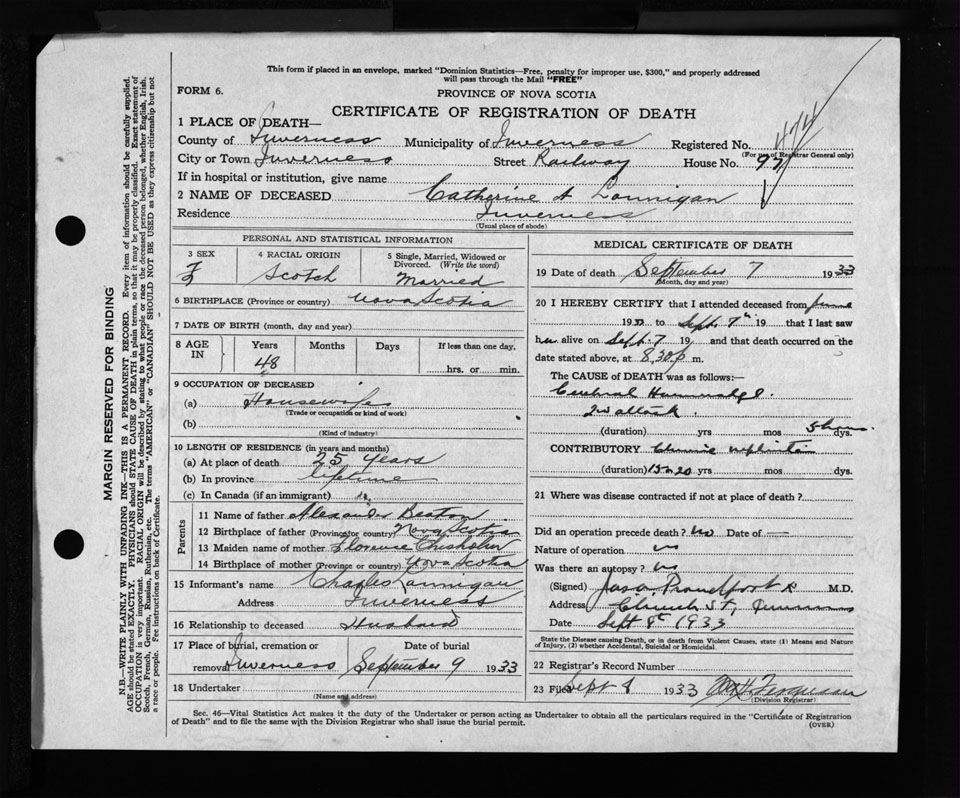 This form if placed in an envelope, marked "Dominion Statistics—Free, penalty for improper use, $300," and properly addressed
will pass through the Mail "FREE"
FORM 6.
PROVINCE OF NOVA SCOTIA
CERTIFICATE OF REGISTRATION OF DEATH
474
1 PLACE OF DEATH—
County of Inverness Municipality of Inverness Registered No.
(For use of Registrar General only)
City or Town Inverness Street Railway House No. 97
If in hospital or institution, give name
2 NAME OF DECEASED Catherine A Lannigan
Residence Inverness
(Usual place of abode)
PERSONAL AND STATISTICAL INFORMATION
3 SEX F
4 RACIAL ORIGIN Scotch
5 Single, Married, Widowed or Divorced. (Write the word) Married
6 BIRTHPLACE (Province or country) Nova Scotia
7 DATE OF BIRTH (month, day and year)
8 AGE IN Years Months Days If less than one day.
48 hrs. or min.
9 OCCUPATION OF DECEASED
(a) Housewife
(Trade or occupation or kind of work)
(b)
(Kind of industry)
10 LENGTH OF RESIDENCE (in years and months)
(a) At place of death 25 years
(b) In province lifetime
(c) In Canada (if an immigrant)
Parents
11 Name of father Alexander Beaton
12 Birthplace of father (Province or country) Nova Scotia
13 Maiden name of mother Florence Chisholm
14 Birthplace of mother (Province or country) Nova Scotia
15 Informant's name Charles Lannigan
Address Inverness
16 Relationship to deceased Husband
17 Place of burial, cremation or removal Inverness
Date of burial September 9 1933
18 Undertaker
(Name and address)
MEDICAL CERTIFICATE OF DEATH
19 Date of death September 7 1933
(Month, day and year)
20 I HEREBY CERTIFY that I attended deceased from
19 to Sept. 7th 19 that I last saw
her alive on Sept. 7 19 and that death occurred on the
date stated above, at 8.30 p m.
The CAUSE of DEATH was as follows:—
Cerebral Hemorrhage
2nd attack
(duration) yrs mos 5 hours dys.
CONTRIBUTORY Chronic nephritis
(duration) 15 or 20 yrs mos dys.
21 Where was disease contracted if not at place of death?
Did an operation precede death? no Date of —
Nature of operation no
Was there an autopsy? no
(Signed) Jason Proudfoot M.D.
Address Church St, Inverness
Date Sept 8th 1933
State the Disease causing Death, or in death from Violent Causes, state (1) Means and Nature
of Injury, (2) whether Accidental, Suicidal or Homicidal.
22 Registrar's Record Number
23 Filed Sept 8 1933 Ferguson
(Division Registrar)
Sec. 46—Vital Statistics Act makes it the duty of the Undertaker or person acting as Undertaker to obtain all the particulars required in the "Certificate of Registration
of Death" and to file the same with the Division Registrar who shall issue the burial permit.
(OVER)
MARGIN RESERVED FOR BINDING
N.B.—WRITE PLAINLY WITH UNFADING INK—THIS IS A PERMANENT RECORD. Every item of information should be carefully supplied.
AGE should be stated EXACTLY. PHYSICIANS should STATE CAUSE OF DEATH in plain terms, so that it may be properly classified. Exact statement of
OCCUPATION is very important. RACIAL ORIGIN will be described by stating to what people or race the deceased person belonged, whether English, Irish,
Scotch, French, German, Russian, Ruthenian, etc. The terms "AMERICAN" or "CANADIAN" SHOULD NOT BE USED as they express citizenship but not
a race or people. See instructions on back of Certificate.